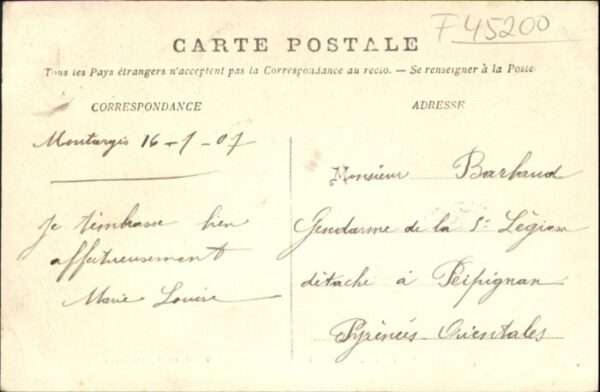 F 45200
CARTE POSTALE
Tous les Pays étrangers n'acceptent pas la Correspondance au recto. — Se renseigner à la Poste
CORRESPONDANCE
ADRESSE
Montargis 16-7-07
Je t'embrasse bien
affectueusement
Marie Louise
Monsieur Barbaud
Gendarme de la 5e Légion
détaché à Perpignan
Pyrénées-Orientales